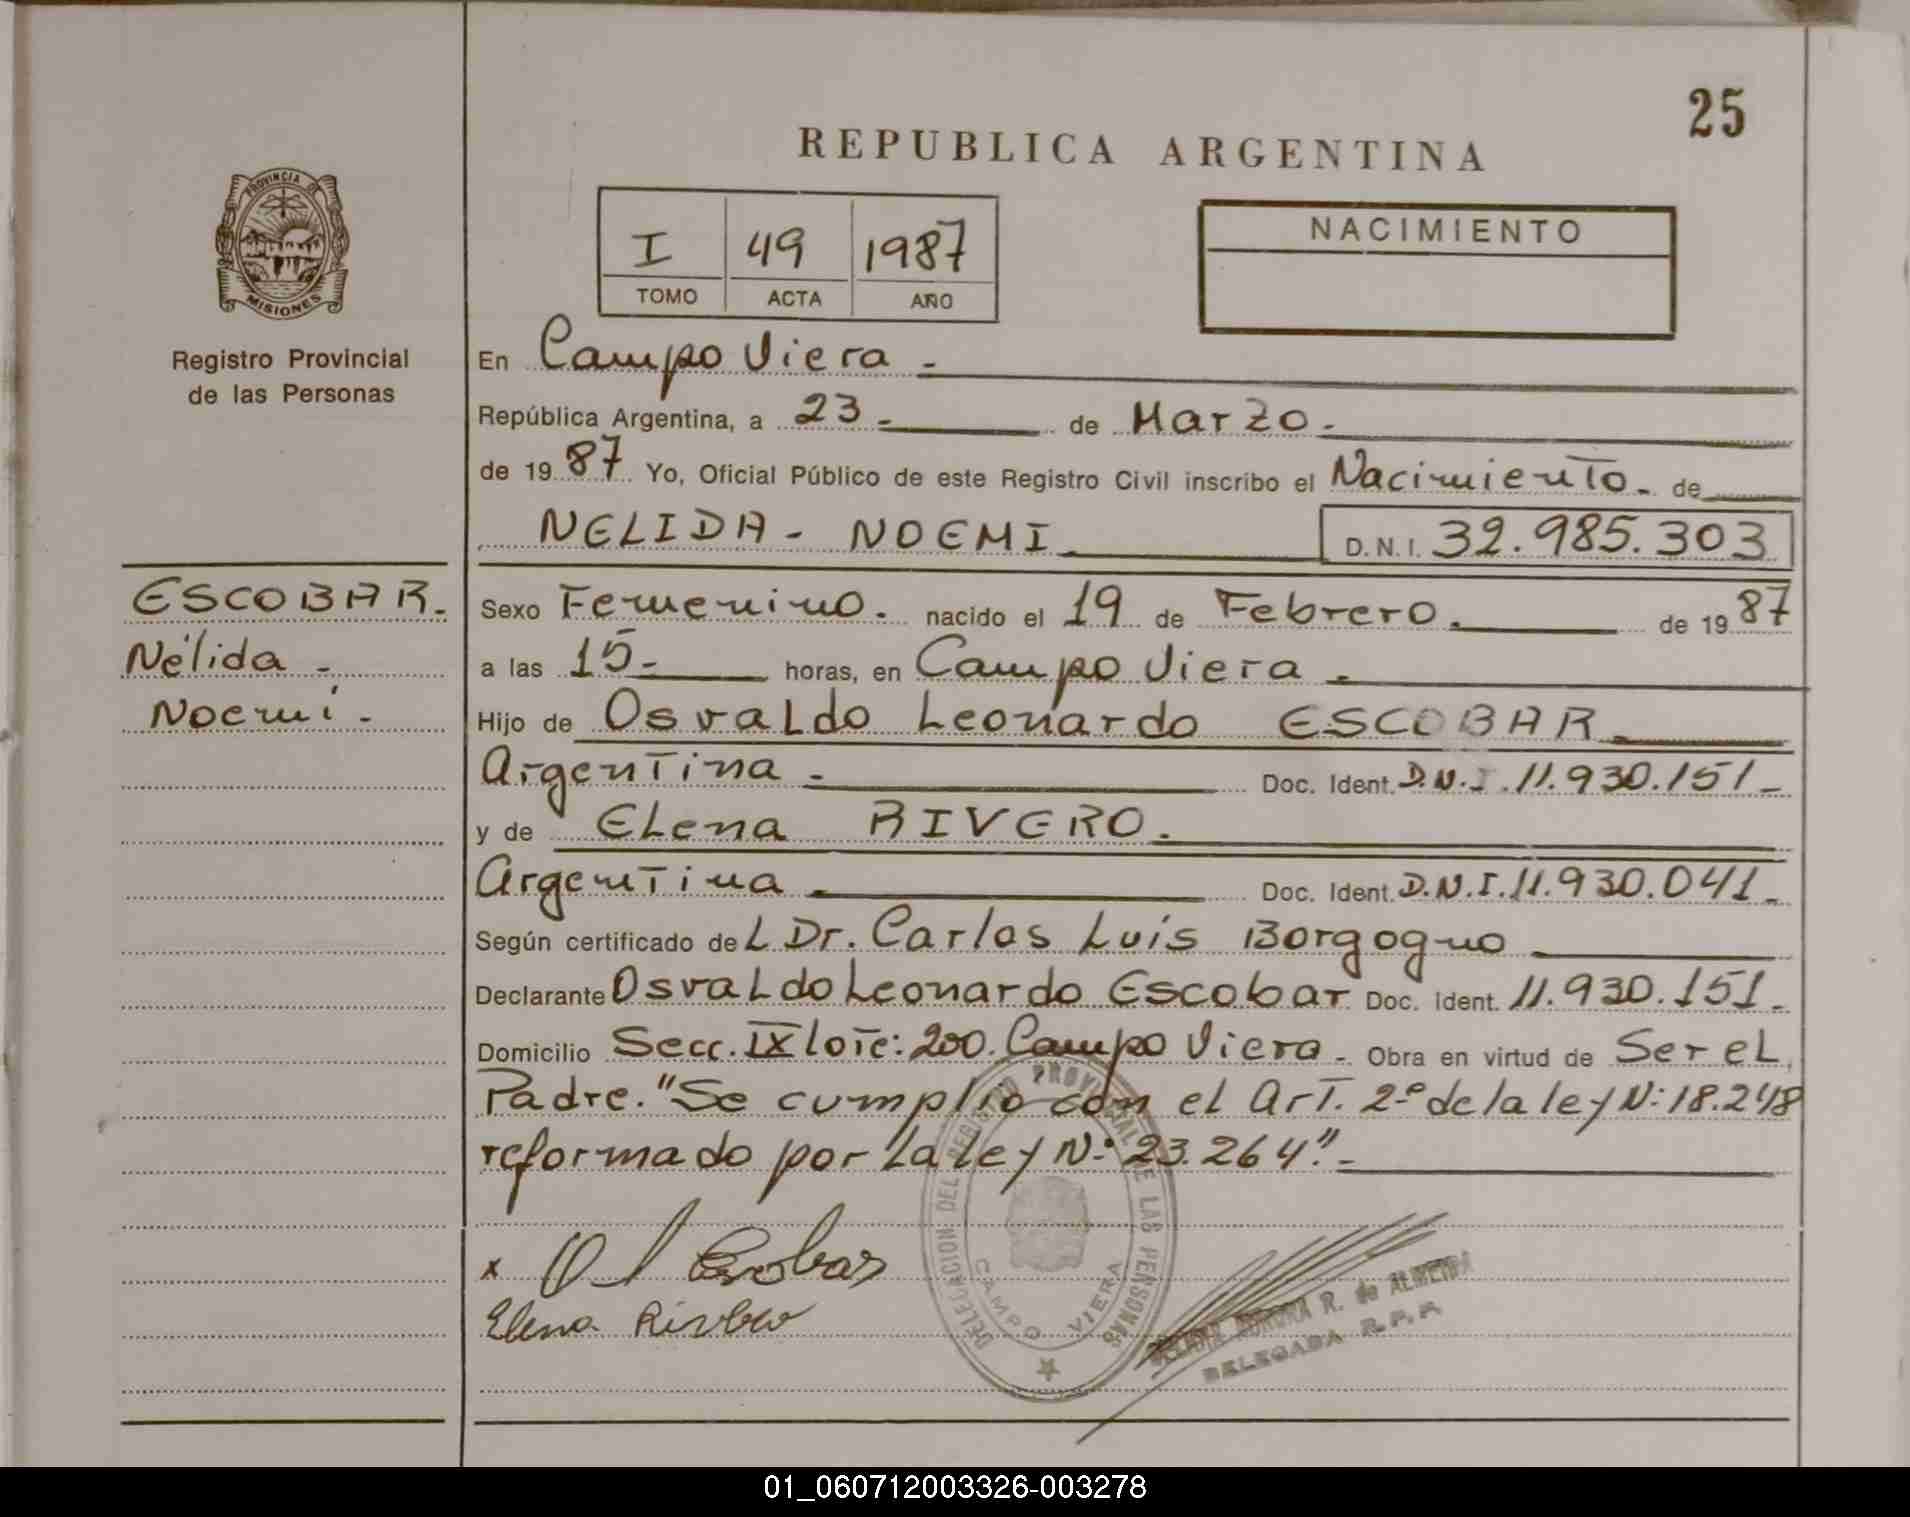 25
REPUBLICA ARGENTINA
PROVINCIA DE
MISIONES
Registro Provincial
de las Personas
I 49 1987
TOMO ACTA AÑO
NACIMIENTO
En Campo Viera -
República Argentina, a 23 - de Marzo -
de 19 87 Yo, Oficial Público de este Registro Civil inscribo el Nacimiento - de
NELIDA - NOEMI D.N.I. 32.985.303
ESCOBAR -
Nélida -
Noemí -
Sexo Femenino - nacido el 19 de Febrero - de 19 87
a las 15 - horas, en Campo Viera -
Hijo de Osvaldo Leonardo ESCOBAR -
Argentina - Doc. Ident. D.N.I. 11.930.151 -
y de Elena RIVERO -
Argentina - Doc. Ident. D.N.I. 11.930.041 -
Según certificado del Dr. Carlos Luis Borgogno
Declarante Osvaldo Leonardo Escobar Doc. Ident. 11.930.151 -
Domicilio Secc. IX lote: 200. Campo Viera - Obra en virtud de Ser el
Padre. "Se cumplio con el Art. 2º de la ley Nº 18.248
reformado por la ley Nº 23.264" -
x O L Escobar
Elena Rivero
DELEGACION DEL REGISTRO PROVINCIAL DE LAS PERSONAS
CAMPO VIERA
R. de ALMEIDA
DELEGADA R.P.P.
01_060712003326-003278